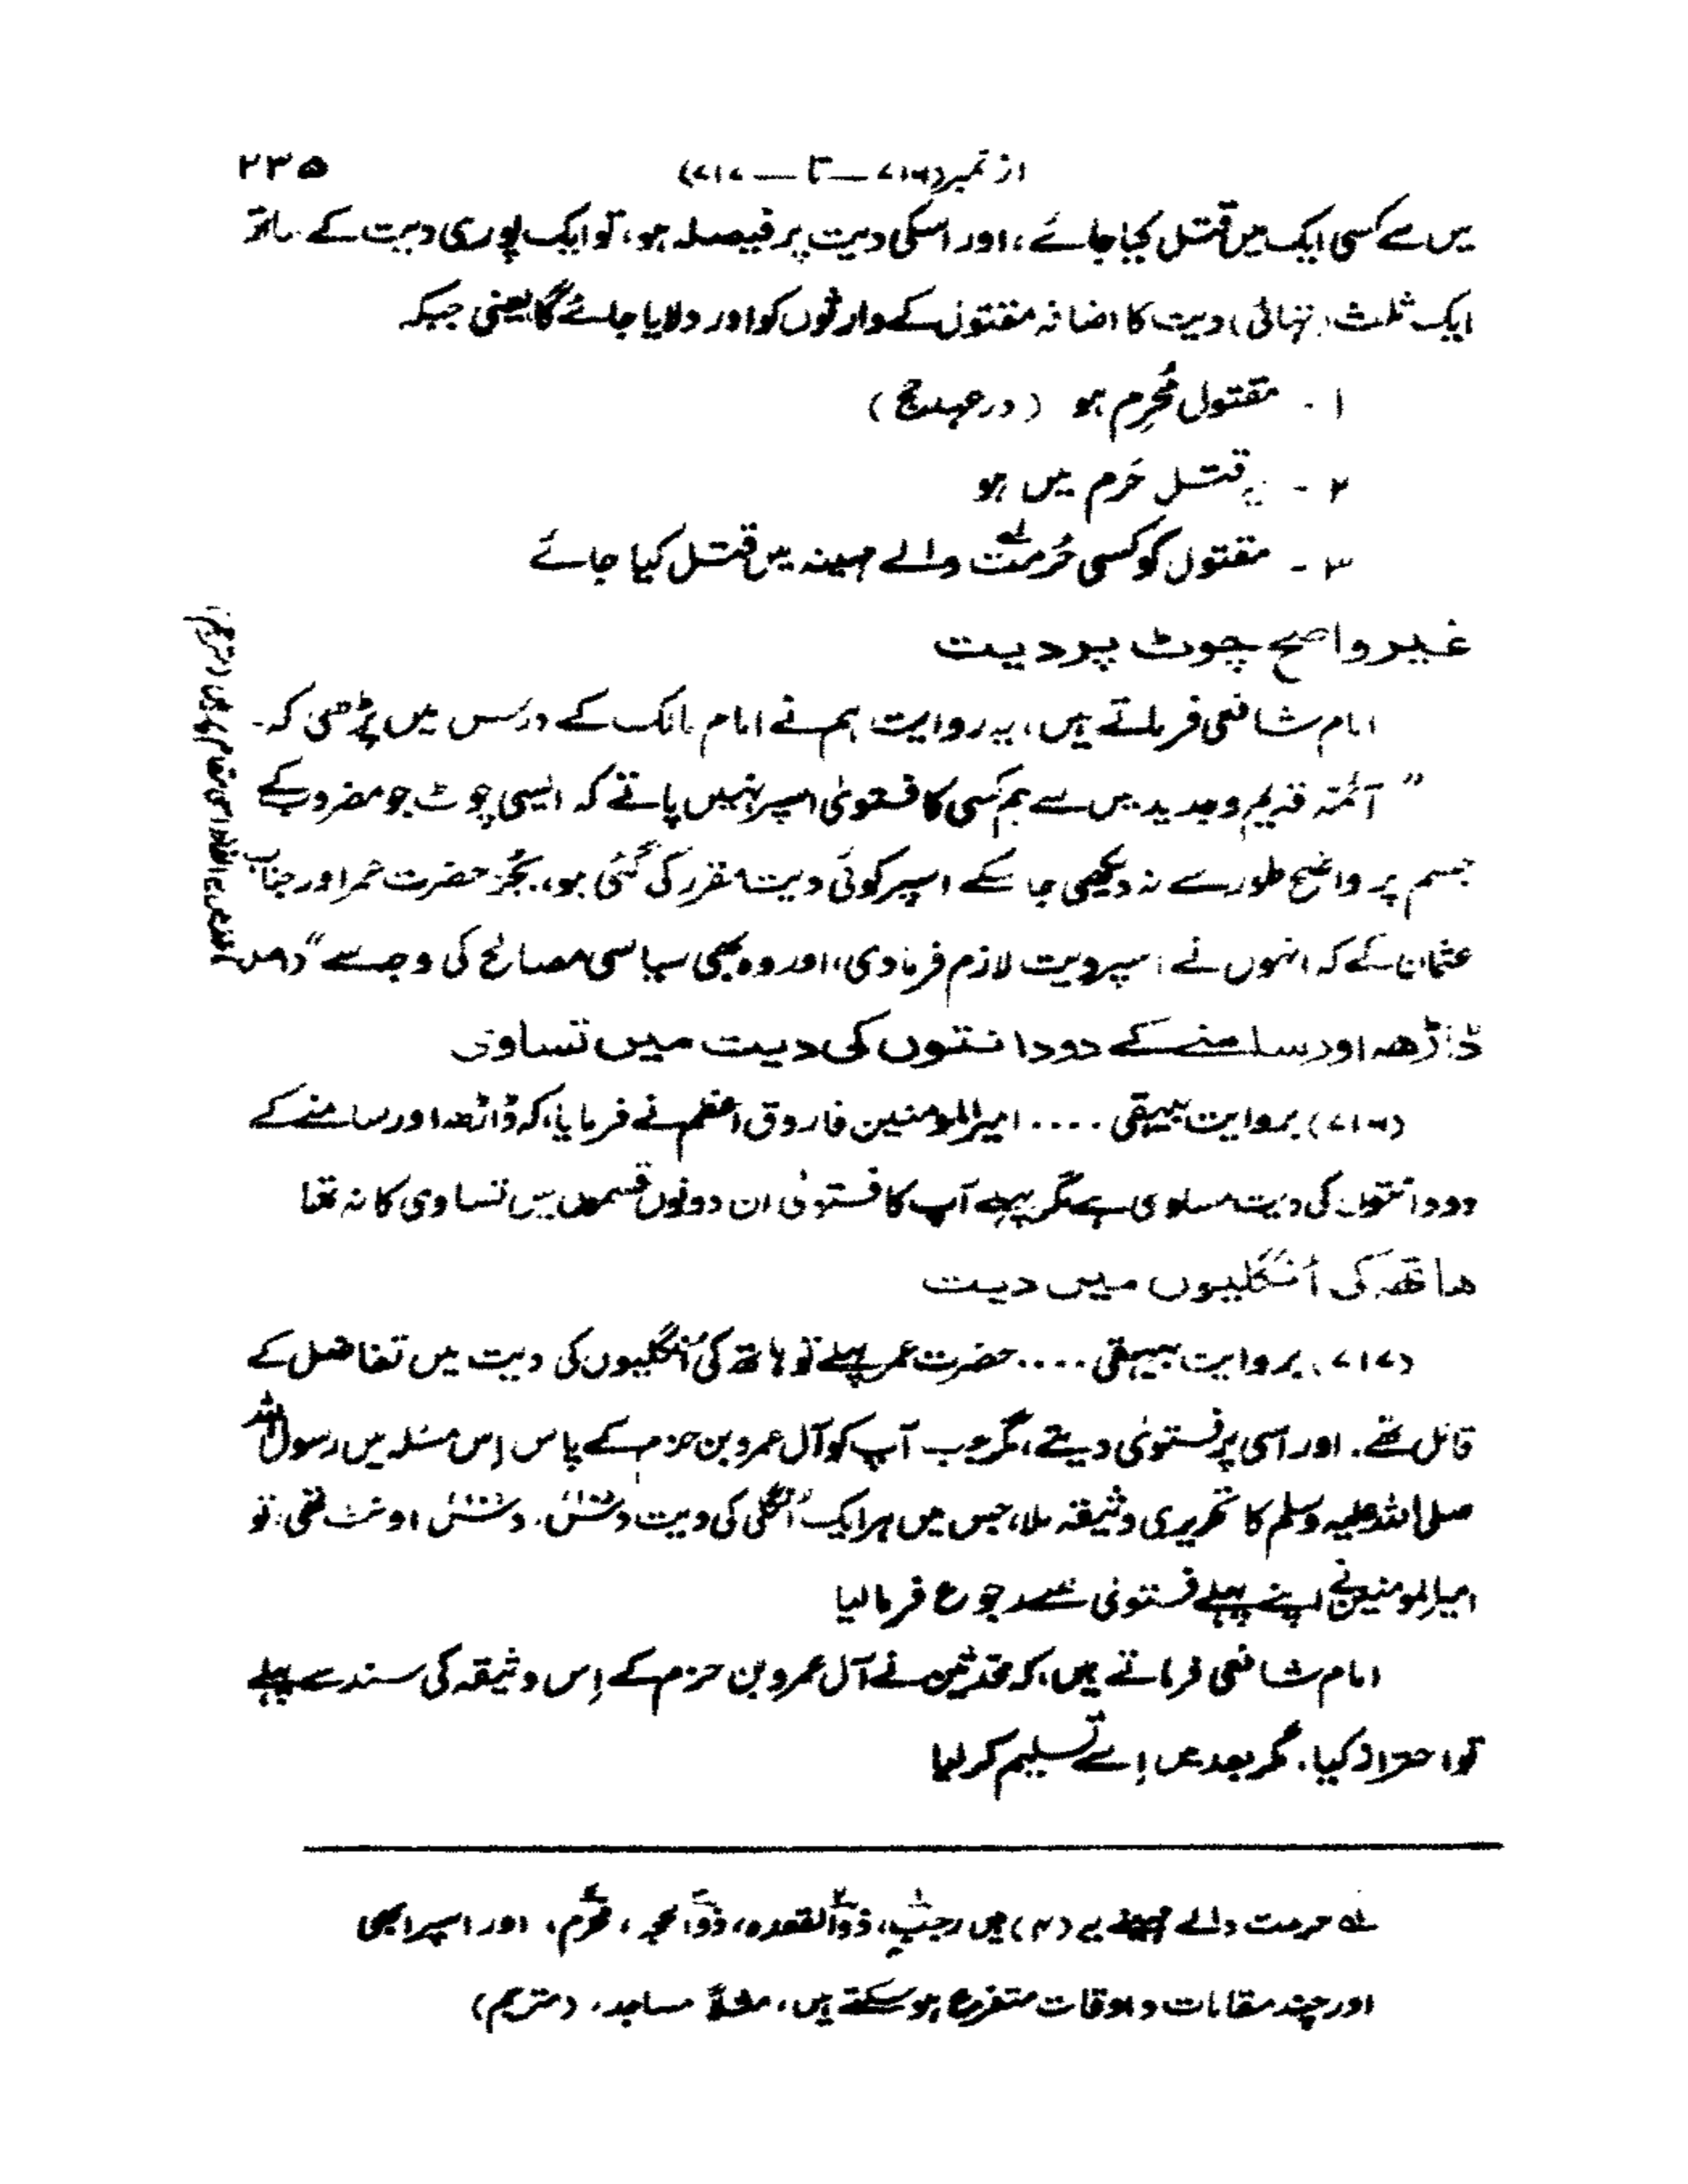 از نمبر (۷۱۶ — تا — ۷۱۷) ۲۳۵
یں سے کسی ایک میں قتل کیا جائے، اور اسکی دیت پر فیصلہ ہو، تو ایک پوری دیت کے ساتھ
ایک ثلث (تہائی) دیت کا اضافہ مقتول کے وارثوں کو اور دلایا جائے گا یعنی جبکہ
۱ - مقتول مُحْرِم ہو (در عہد حج)
۲ - یہ قتل حَرم میں ہو
۳ - مقتول کو کسی حُرمت لہ والے مہینہ میں قتل کیا جائے
غیر واضح چوٹ پر دیت
امام شافعی فرماتے ہیں، یہ روایت ہم نے امام مالک کے درس میں پڑھی کہ۔
“ آئمہ قدیم و جدید میں سے ہم کسی کا فتویٰ اسپر نہیں پاتے کہ ایسی چوٹ جو مضروب کے
جسم پر واضح طور سے نہ دیکھی جا سکے اسپر کوئی دیت مقرر کی گئی ہو، بجُز حضرت عمر اور جناب
عثمان کے کہ انہوں نے اسپر دیت لازم فرما دی، اور وہ بھی سیاسی مصالح کی وجہ سے”
ڈاڑھ اور سامنے کے دو دانتوں کی دیت میں تساوی
(۷۱۶) بروایت بیہقی .... امیر المومنین فاروق اعظم نے فرمایا، کہ ڈاڑھ اور سامنے کے
دو دانتوں کی دیت مساوی ہے مگر پہلے آپ کا فتویٰ ان دونوں قسموں میں تساوی کا نہ تھا
ھاتھ کی اُنگلیوں میں دیت
(۷۱۷) بروایت بیہقی .... حضرت عمر پہلے تو ہاتھ کی اُنگلیوں کی دیت میں تفاضل کے
قائل تھے۔ اور اسی پر فتویٰ دیتے، مگر جب آپ کو آل عمرو بن حزم کے پاس اِس مسئلہ میں رسول اللہ
صلی اللہ علیہ وسلم کا تحریری وثیقہ ملا، جس میں ہر ایک اُنگلی کی دیت دس، دس اونٹ تھی، تو
امیر المومنین نے اپنے پہلے فتویٰ سے رجوع فرما لیا
امام شافعی فرماتے ہیں، کہ محدثین نے آل عمرو بن حزم کے اِس وثیقہ کی سند سے پہلے
تو احتراز کیا۔ مگر بعد میں اِسے تسلیم کر لیا
لہ حرمت والے مہینے یہ (۴) ہیں رجب، ذوالقعدہ، ذوالحجہ، محرم، اور اسپر ابھی
اور چند مقامات و اوقات متفرع ہو سکتے ہیں، مثلاً مساجد۔ (مترجم)